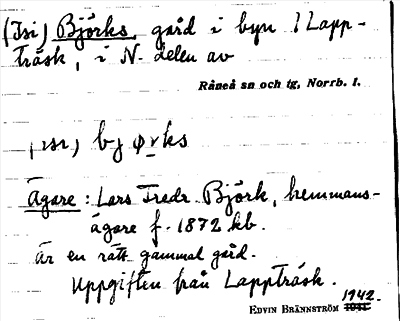 (Isi) Björks, gård i byn i Lapp-
träsk, i N. delen av
Råneå sn och tg, Norrb. l.
(ısı) bjørks
Ägare: Lars Fredr. Björk, hemmans-
ägare f. 1872 kb.
Är en rätt gammal gård.
Uppgiften från Lappträsk.
Edvin Brännström 1942.